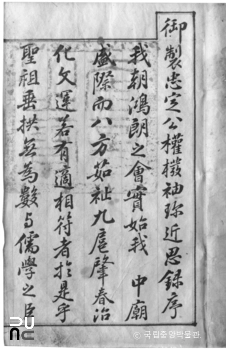 御製忠定公權橃袖珍近思錄序
我朝鴻朗之會實始我 中廟
盛際而八方茹祉九扈肇春治
化文運若有適相符者於是乎
聖祖垂拱無為數与儒學之臣
국립중앙박물관